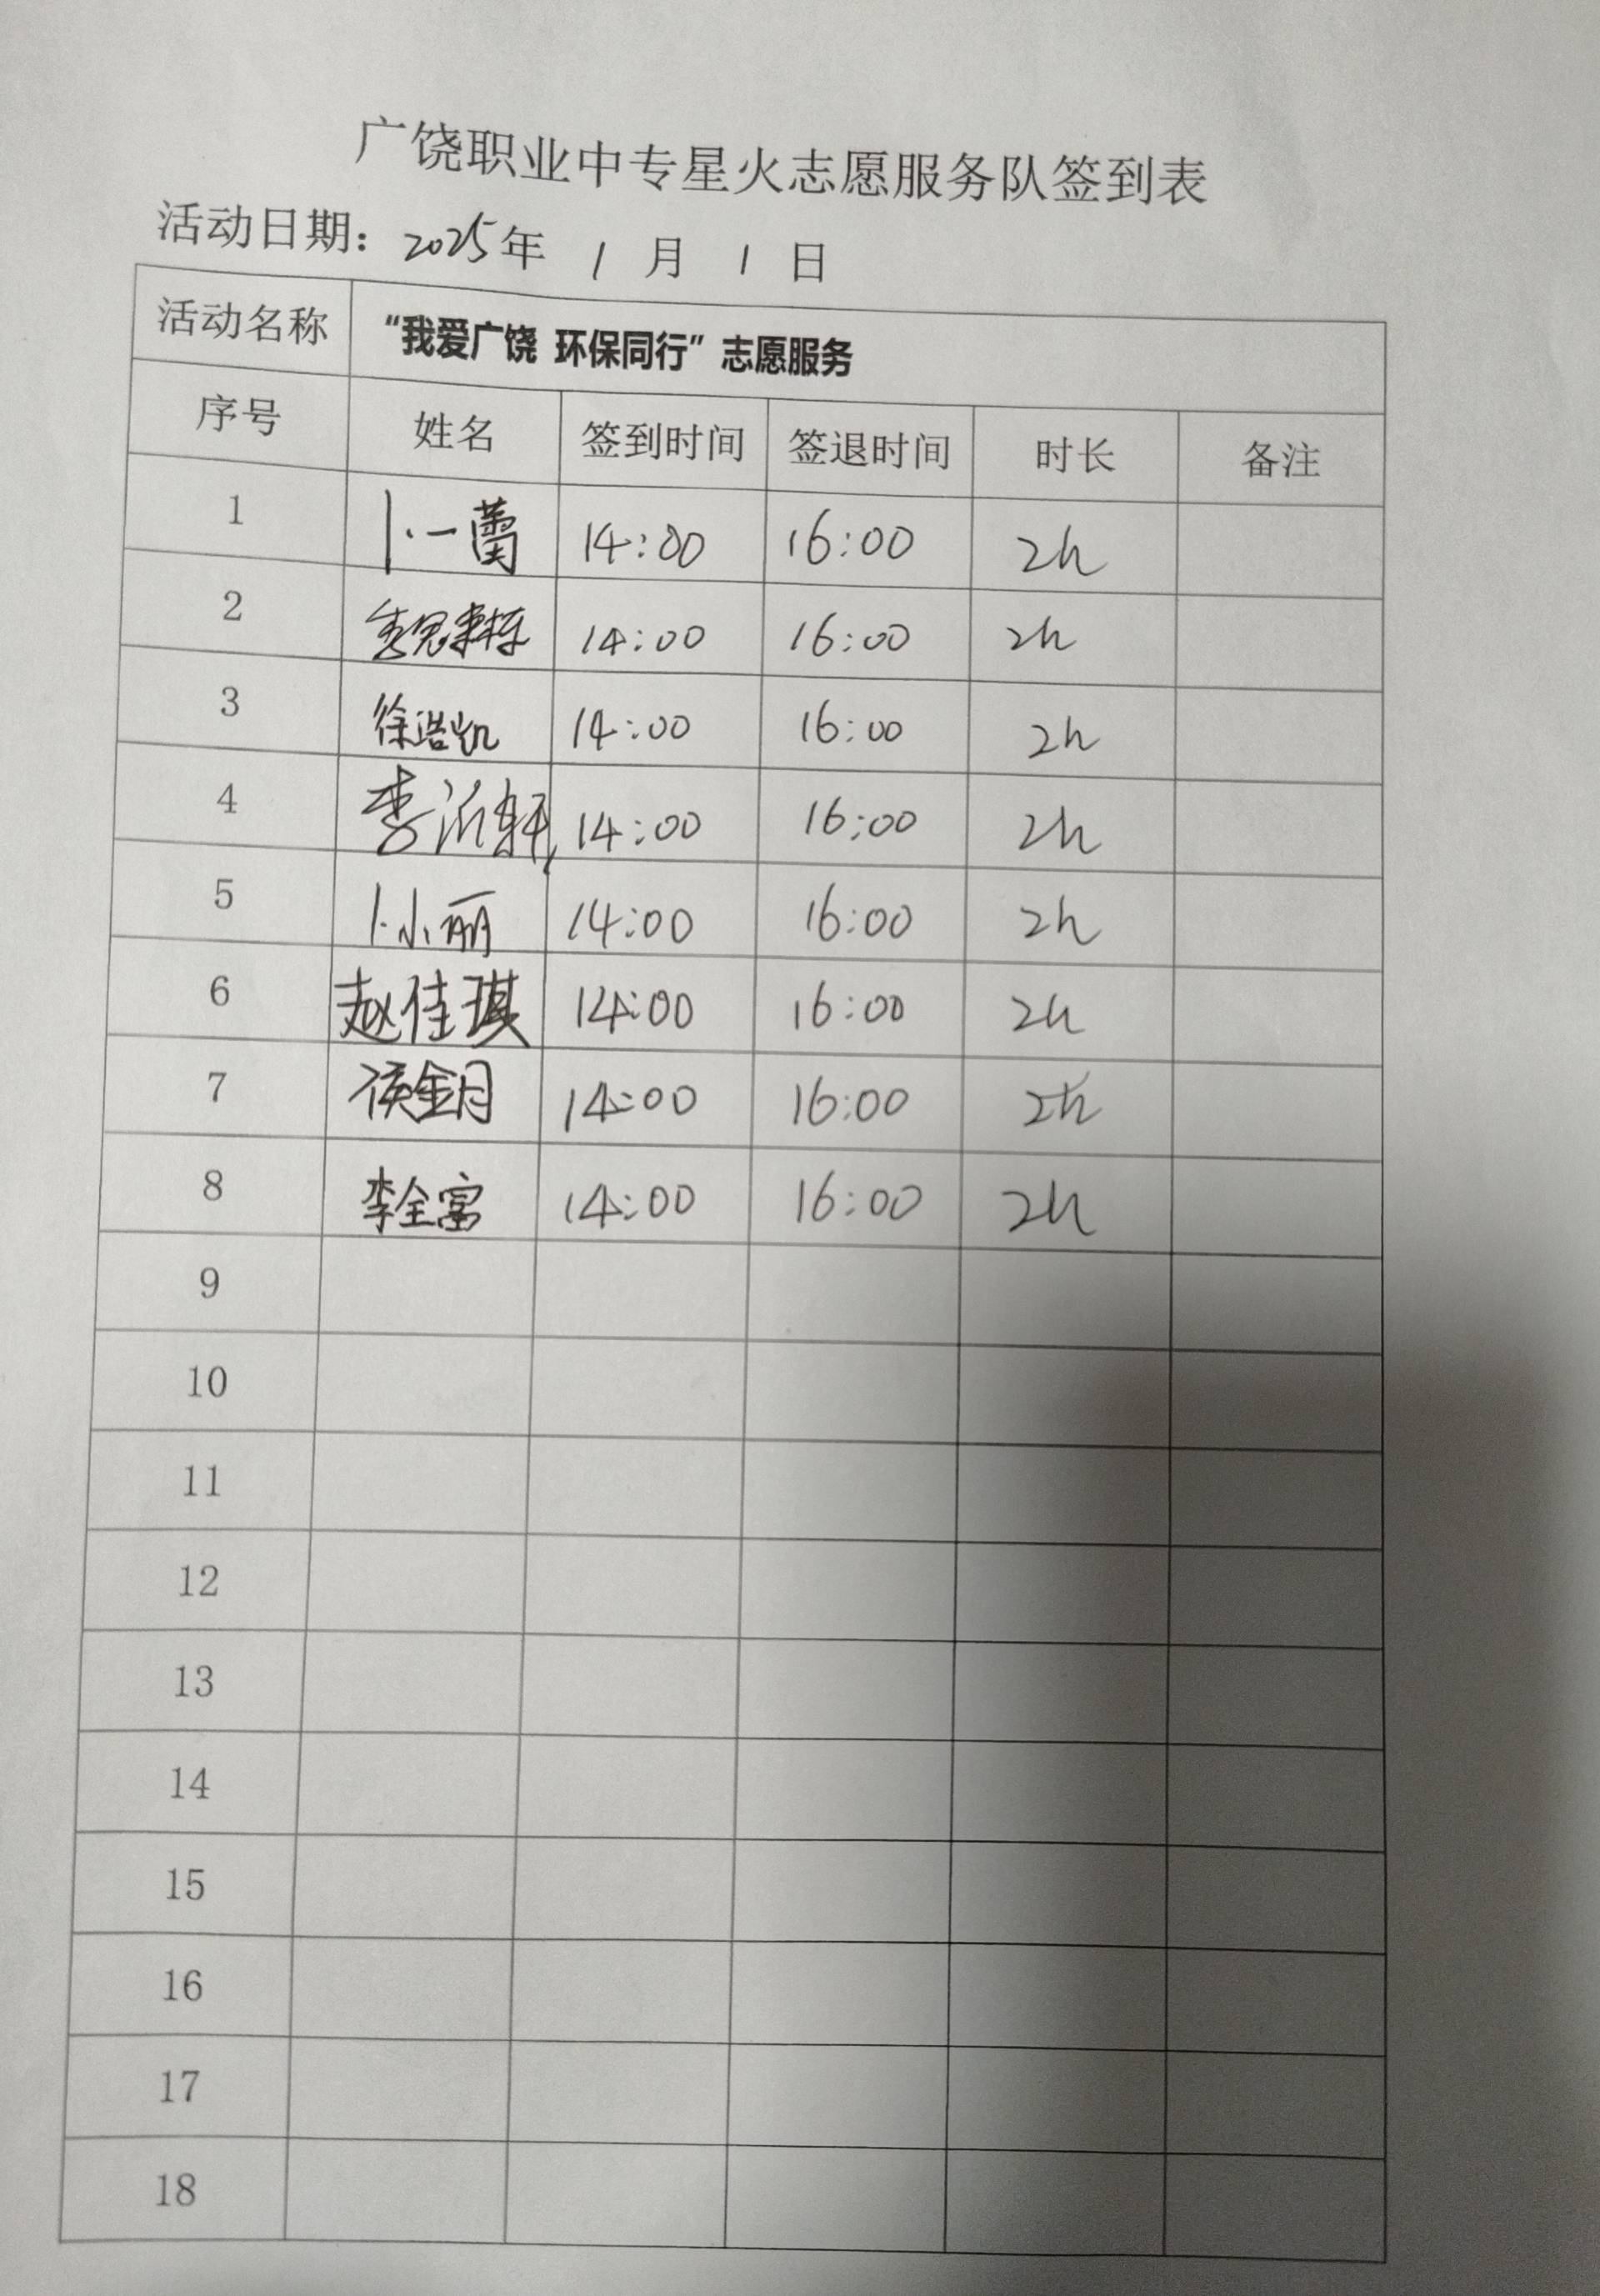 广饶职业中专星火志愿服务队签到表
活动日期：2025年 1 月 1 日
活动名称 “我爱广饶 环保同行”志愿服务
序号 姓名 签到时间 签退时间 时长 备注
1 卜一蕾 14:00 16:00 2h
2 14:00 16:00 2h
3 徐浩凯 14:00 16:00 2h
4 李沂轩 14:00 16:00 2h
5 卜小丽 14:00 16:00 2h
6 赵佳琪 14:00 16:00 2h
7 侯金月 14:00 16:00 2h
8 李全富 14:00 16:00 2h
9
10
11
12
13
14
15
16
17
18